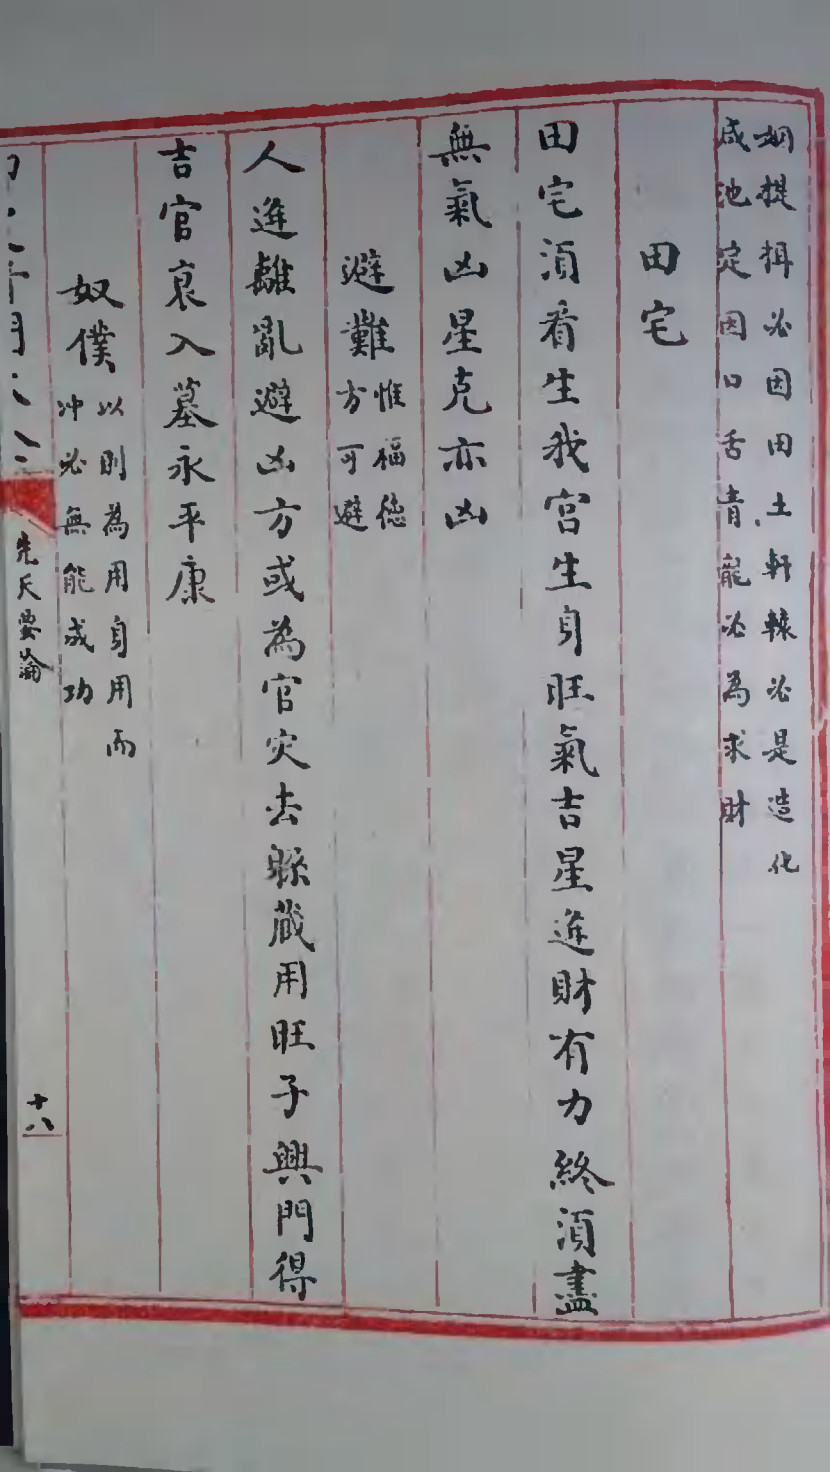 婣提揖必因田土軒轅必是造化
咸池定因口舌青龍必為求財
田宅
田宅須看生我宮生身旺氣吉星進財有力終須盡
無氣凶星克亦凶
避難
惟福德
方可避
人進離亂避凶方或為官灾去躲藏用旺子興門得
吉官衰入墓永平康
奴僕
以刖為用身用而
冲必無能成功
先天要論
十八